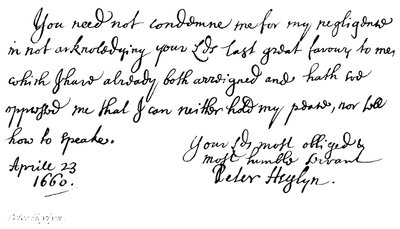 You need not condemne me for my negligence
in not acknoledging your Lds last great favour to me,
which I have already both arreigned and hath soe
oppressed me that I can neither hold my peace, nor tell
how to speake.
Your Lds most obliged &
most humble servant
Peter Heylyn.
Aprill 23
1660.
Peter Heylyn